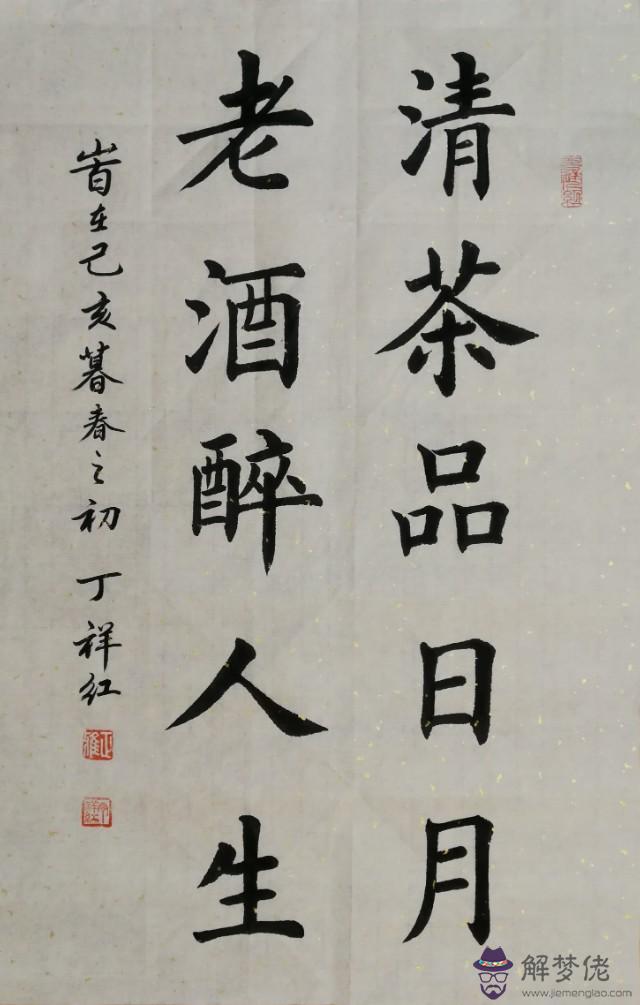 清茶品日月
老酒醉人生
旹在己亥暮春之初 丁祥红
解梦佬
www.jiemenglao.com